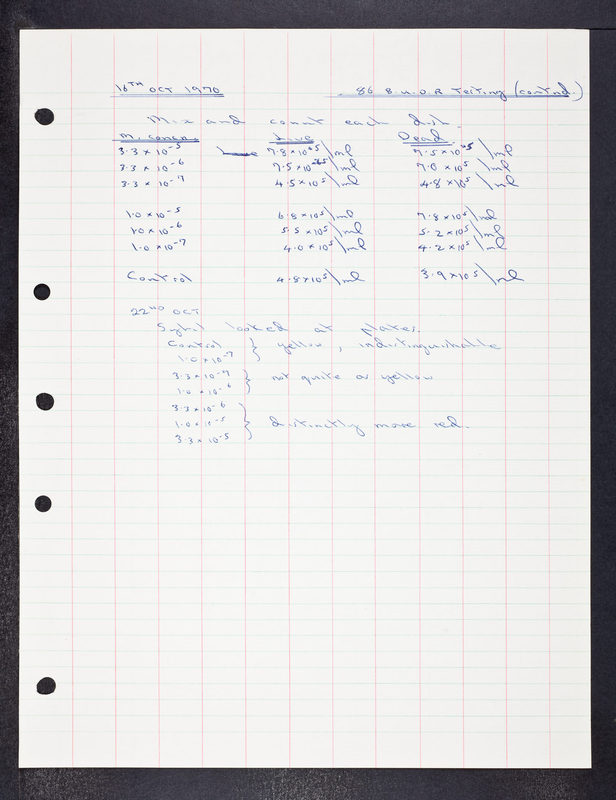 16TH OCT 1970 86 B.U.O.R Testing (contnd.)
Mix and count each dish.
M. concn. Live Dead
3.3 x 10-5 7.8 x 10 5/ml 7.5 x 10 5/ml
3.3 x 10-6 7.5 x 10 5/ml 7.0 x 10 5/ml
3.3 x 10-7 4.5 x 10 5/ml 4.8 x 10 5/ml
1.0 x 10-5 6.8 x 10 5/ml 7.8 x 10 5/ml
1.0 x 10-6 5.5 x 10 5/ml 5.2 x 10 5/ml
1.0 x 10-7 4.0 x 10 5/ml 4.2 x 10 5/ml
Control 4.8 x 10 5/ml 3.9 x 10 5/ml
22ND OCT
Sybil looked at plates.
Control } yellow, indistinguishable
1.0 x 10-7
3.3 x 10-7 } not quite as yellow
1.0 x 10-6
3.3 x 10-6
1.0 x 10-5 } distinctly more red.
3.3 x 10-5